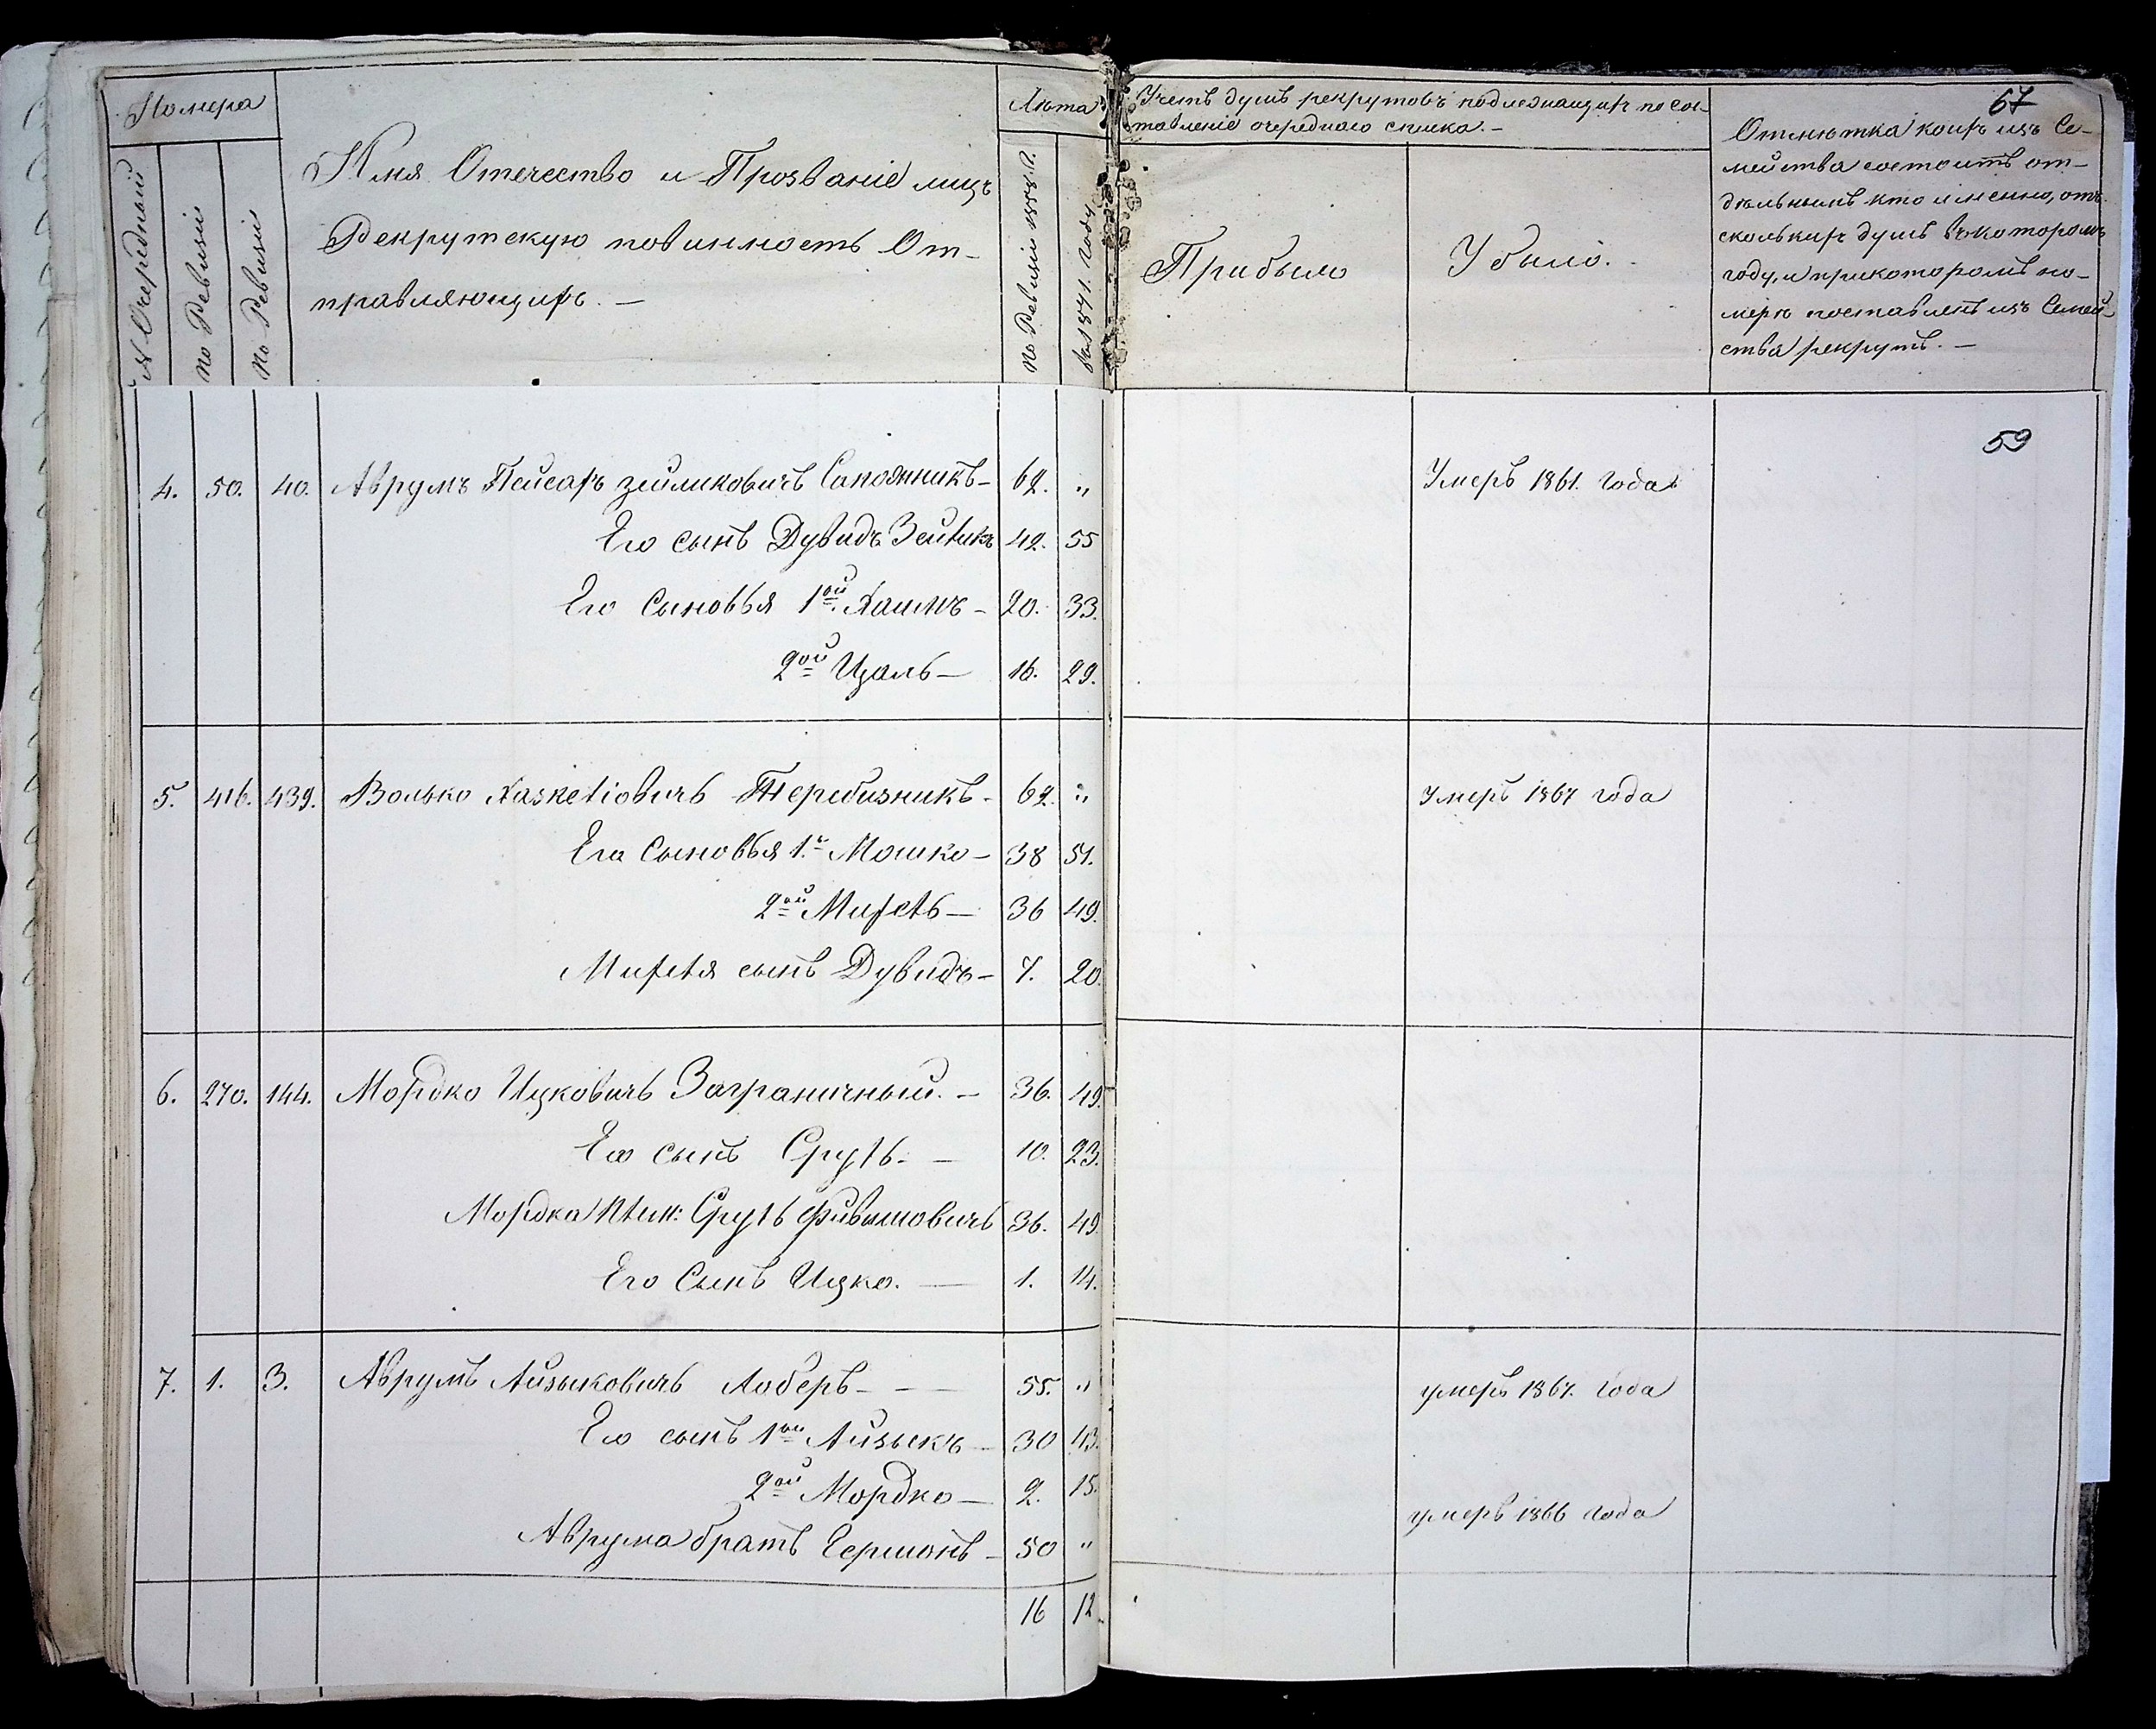 Номера
№ Очередный
по Ревизіи
по Ревизіи
Имя Отечество и Прозваніе лицъ
Рекрутскую повинность От-
правляющихъ. —
Лѣта
по Ревизіи 1858 г.
въ 1871. году
Учетъ душъ рекрутовъ подлежащихъ по сос-
тавленіе очереднаго списка. —
Прибыло
Убыло.
67
Отмѣтка коихъ изъ Се-
мейства состоитъ от-
дѣльнымъ кто именно, отъ
сколькихъ душъ въ которомъ
году, и при которомъ но-
мерѣ поставленъ изъ Семей-
ства рекрутъ. —
59
4. 50. 40. Аврумъ Пейсахъ Зейликовичъ Сапожникъ — 62. „ Умеръ 1861. года
Его сынъ Дувидъ Зейликъ 42. 55
Его Сыновья 1ой Хаимъ — 20. 33.
2ой Ицаль — 16. 29.
5. 416. 439. Волько Хаскелiовичъ Теребизникъ — 62. „ Умеръ 1867 года
Его Сыновья 1. Мошко — 38 51.
2ой Михель — 36 49.
Михеля сынъ Дувидъ — 7. 20.
6. 270. 144. Мордко Ицковичъ Заграничный. — 36. 49.
Его сынъ Сруль. — 10. 23.
Мордка Плем: Сруль Фивишовичъ 36. 49.
Его Сынъ Ицко. — 1. 14.
7. 1. 3. Аврумъ Айзыковичъ Лоберъ — — 55. „ умеръ 1867. года
Его сынъ 1ой Айзыкъ — 30 43.
2ой Мордко — 2. 15.
Аврума братъ Гершонъ — 50 „ умеръ 1866 года
16 12.